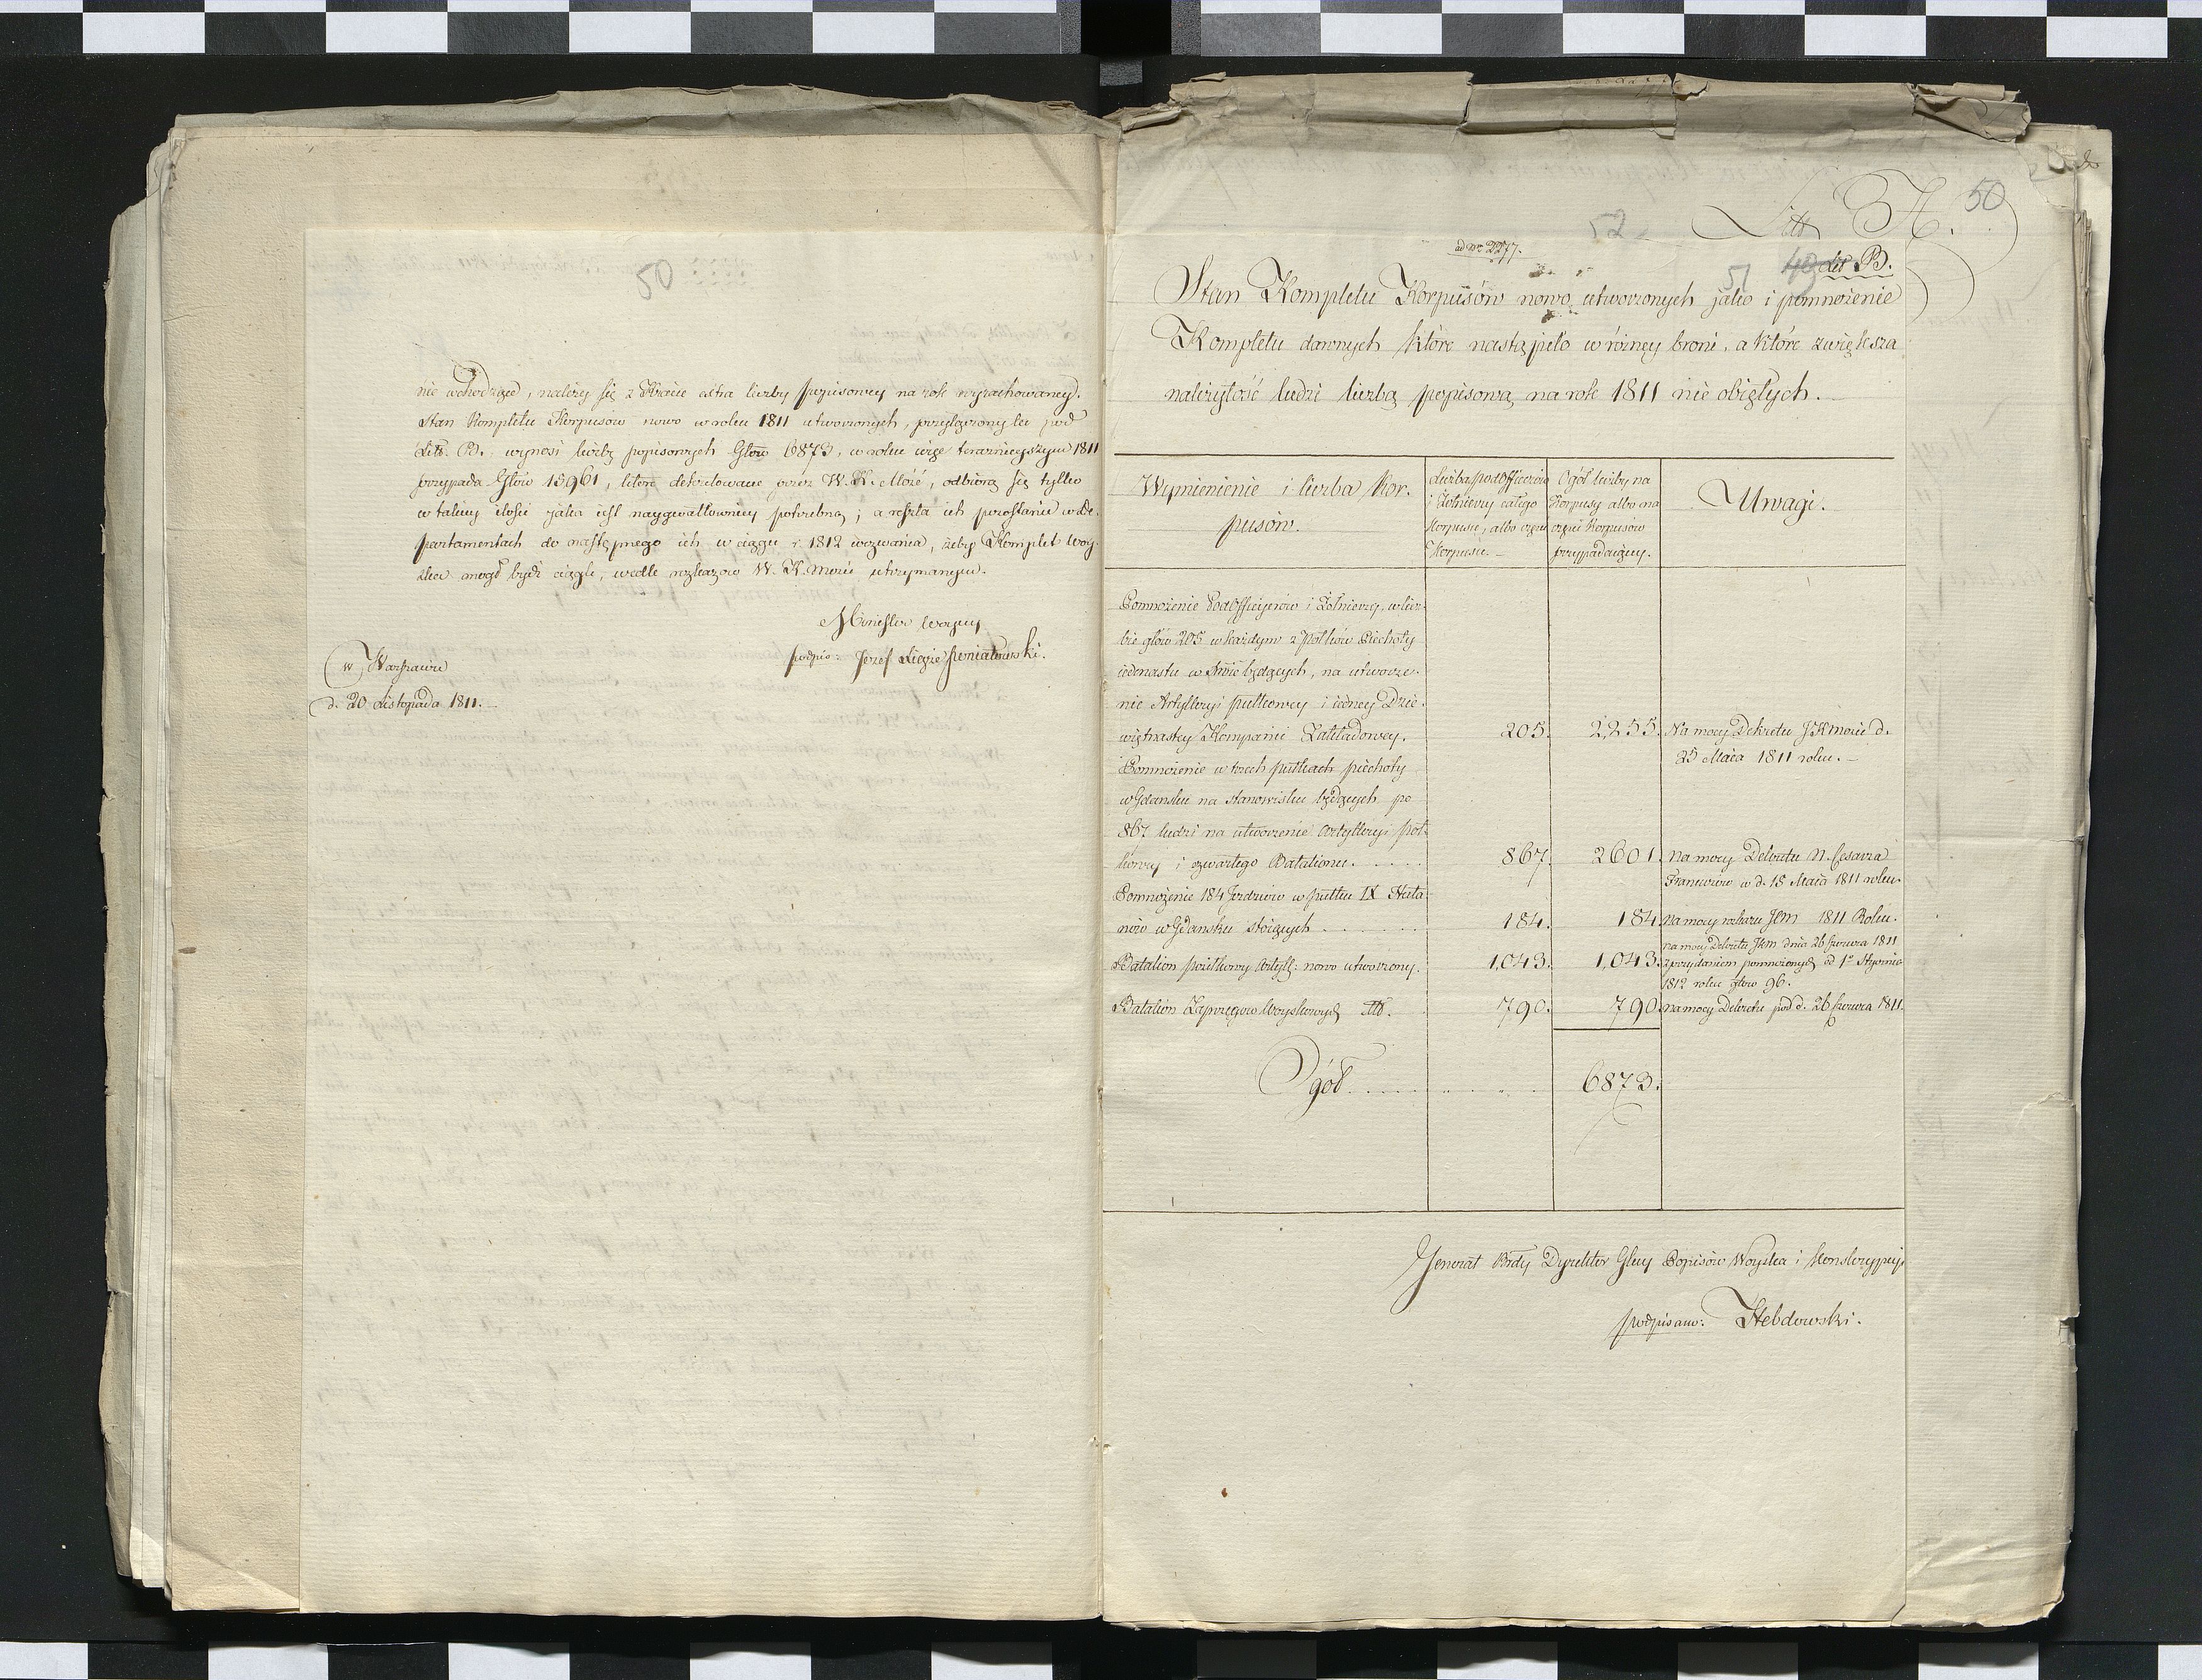 50
nie wchodzące, należy się z Kraju extra liczby popisowey na rok wyrachowaney.
Stan Kompletu Korpusów nowo w roku 1811 utworzonych, przyłączony tu pod
Litt. B. wynosi liczbę popisowych Głów 6873, w roku więc teraznieyszym 1811
przypada Głów 15961, które dekretowane przez W. K. Mość, odbiorą się tylko
w takiey ilości jaka jest naygwałtowniey potrzebną; a reszta ich pozostanie w De-
partamentach do następnego ich w ciągu r. 1812 wezwania, żeby Komplet Woy-
ska mogł bydź ciągle, wedle rozkazów W. K. Mości utrzymanym.
Minister Woyny
podpis: Jozef Xiąże Poniatowski.
w Warszawie
d. 20 Listopada 1811.
Litt A. 50
52
ad Nr 2277.
51 49 Litt B.
Stan Kompletu Korpusów nowo utworzonych jako i pomnożenie
Kompletu dawnych które nastąpiło w różney broni, a które zwiększa
należytość ludzi liczbą popisową na rok 1811 nie obiętych.
Wymienienie i liczba Kor-
pusów.
Liczba podofficerów
i Żołnierzy całego
Korpusu, albo części
Korpusu.
Ogół liczby na
Korpusy albo na
części Korpusów
przypadaiący.
Uwagi.
Pomnożenie Podofficyerów i Żołnierzy, w licz-
bie głów 205 w każdym z Półków Piechoty
iedenastu w będących, na utworze-
nie Artylleryi pułkowey i iedney Dzie-
więtnastey Kompanii Zakładowey. 205. 2,255. Na mocy Dekretu JKMości d.
25 Maia 1811 roku.
Pomnożenie w trzech pułkach piechoty
w Gdansku na stanowisku będących po
867 ludzi na utworzenie Artylleryi poł-
kowey i czwartego Batalionu. 867. 2601. Na mocy Dekretu N. Cesarza
Francuzów w d. 15 Maia 1811 roku.
Pomnożenie 184 Jezdzców w pułku IX Uła-
nów w Gdansku stoiących 184. 184. Na mocy rozkazu JKM 1811 Roku.
Batalion pociągowy Artyll: nowo utworzony. 1,043. 1,043. na mocy Dekretu JKM dnia 26 Czerwca 1811
z przydaniem pomnożonych od 1o Stycznia
1812 roku głów 96.
Batalion Zaprzęgow Woyskowych 790. 790. na mocy Dekretu pod d. 26 Czerwca 1811.
Ogół 6873.
Generał Brdy Dyrektor Glny Popisów Woyska i Konskrypcyi
podpisano: Hebdowski.